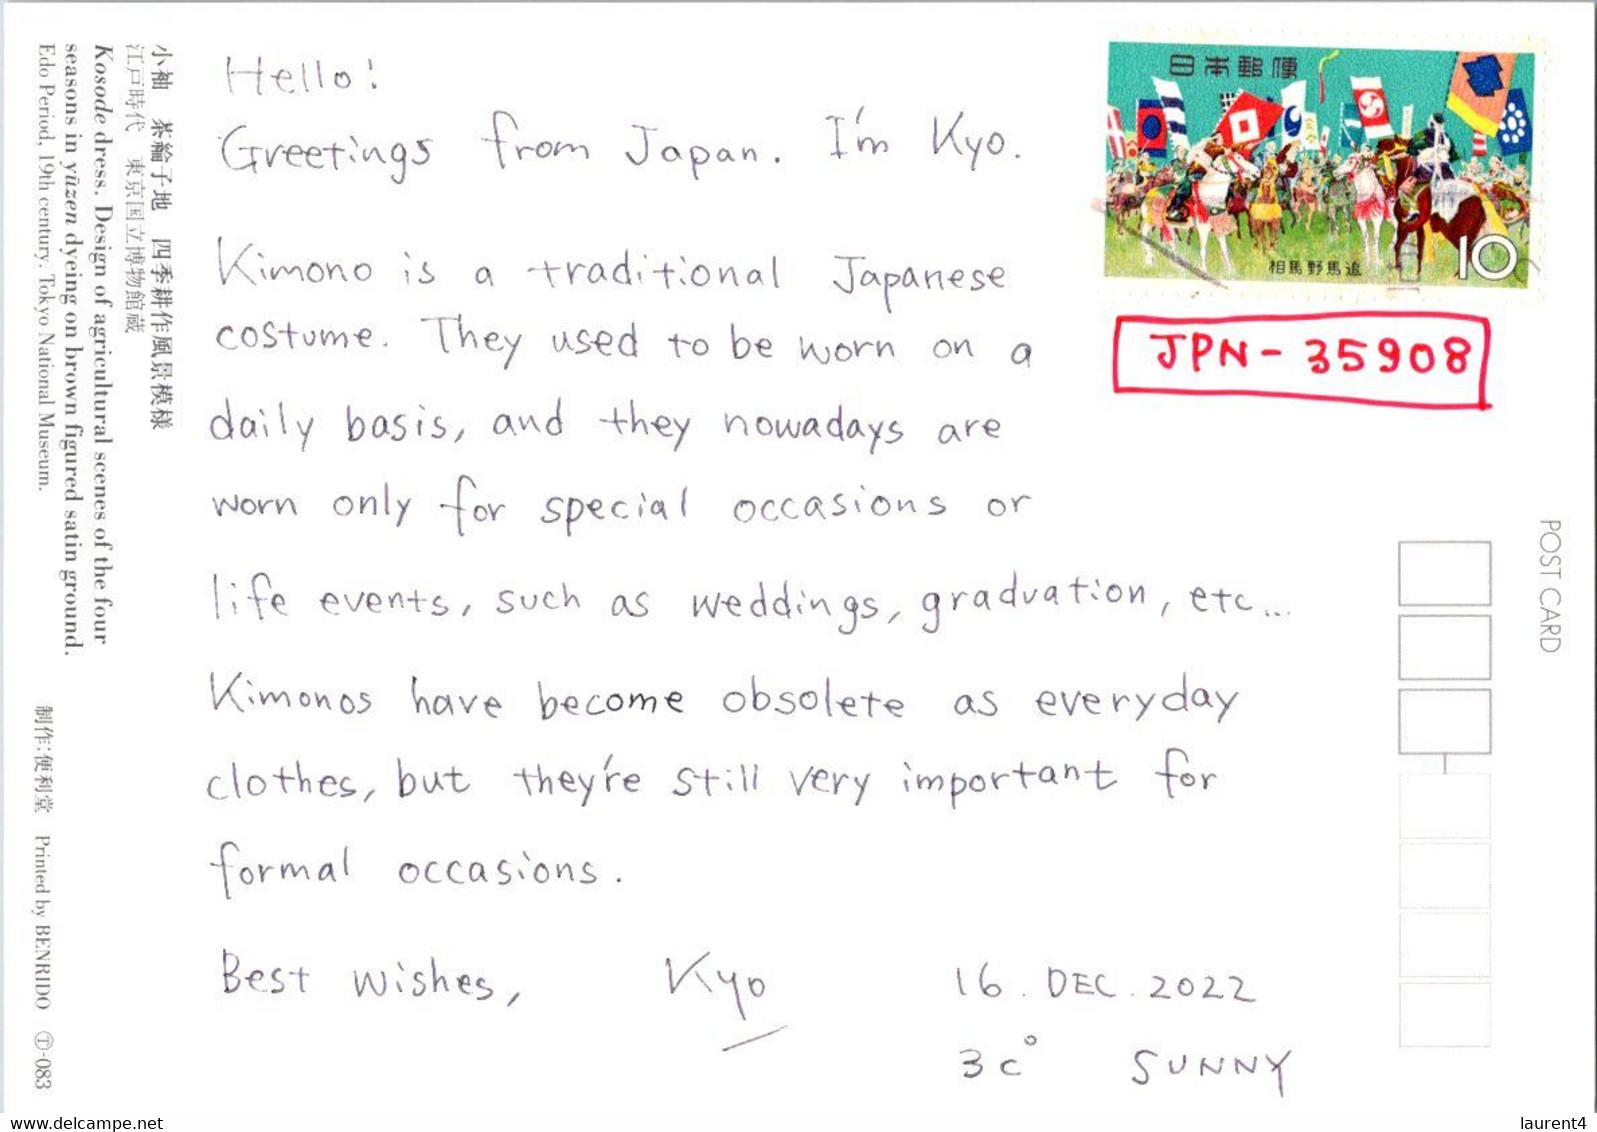 Hello!
Greetings from Japan. I'm Kyo.
Kimono is a traditional Japanese
costume. They used to be worn on a
daily basis, and they nowadays are
worn only for special occasions or
life events, such as weddings, graduation, etc...
Kimonos have become obsolete as everyday
clothes, but they're still very important for
formal occasions.
Best wishes, Kyo
16. DEC. 2022
3c° SUNNY
日本郵便
相馬野馬追
10
JPN-35908
POST CARD
小袖 茶綸子地 四季耕作風景模様
江戸時代 東京国立博物館蔵
Kosode dress. Design of agricultural scenes of the four
seasons in yūzen dyeing on brown figured satin ground.
Edo Period, 19th century. Tokyo National Museum.
制作:便利堂 Printed by BENRIDO Ⓣ-083
www.delcampe.net
laurent4